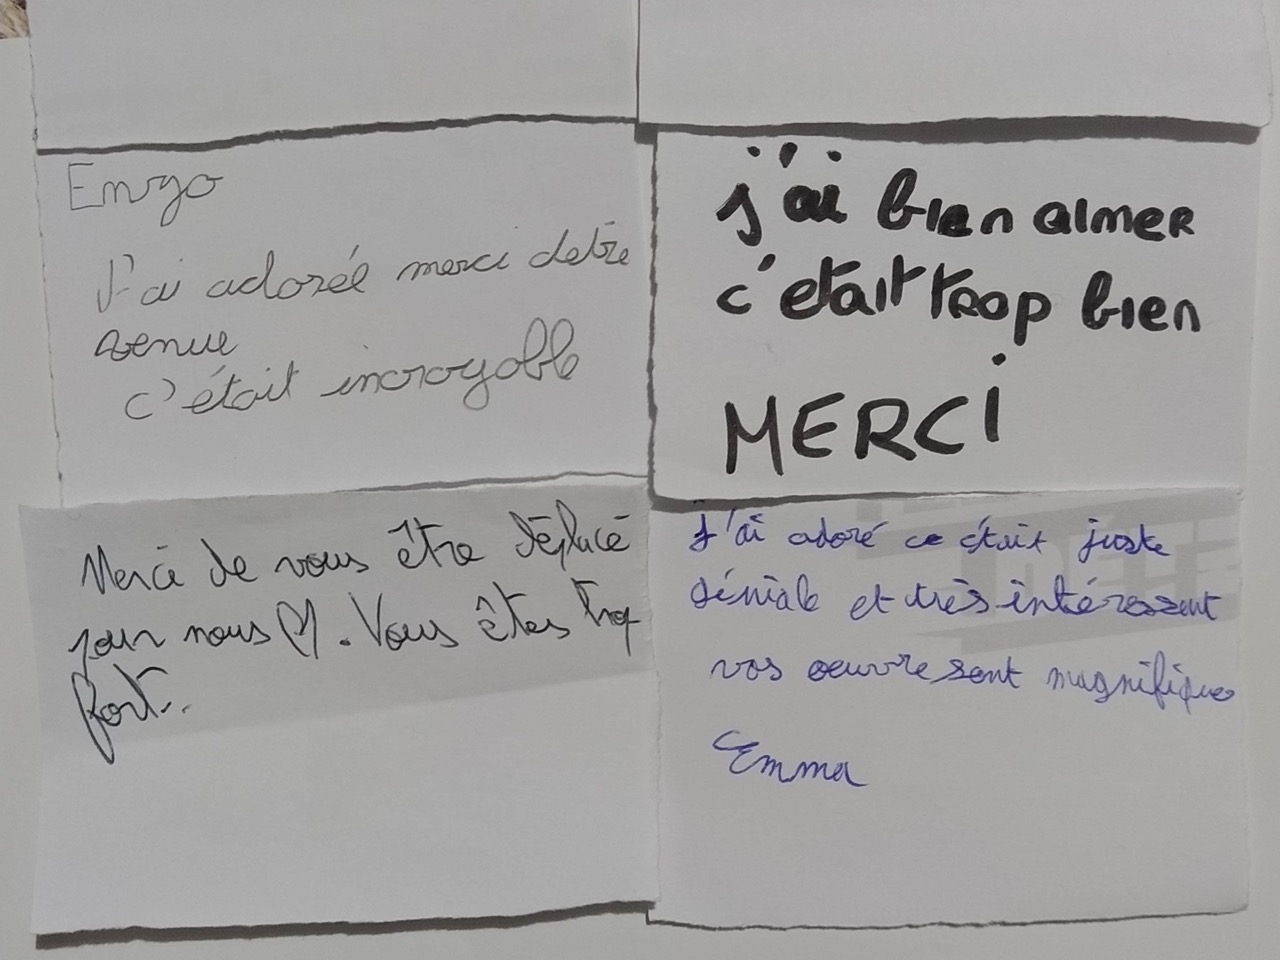 Enzo
J'ai adorée merci detre
venue
c'était incroyable
j'ai bien aimer
c'était trop bien
MERCI
Merci de vous être déplacé
pour nous. Vous êtes trop
fort..
J'ai adoré ce était juste
génial et très intéressent
vos oeuvre sont magnifique
Emma